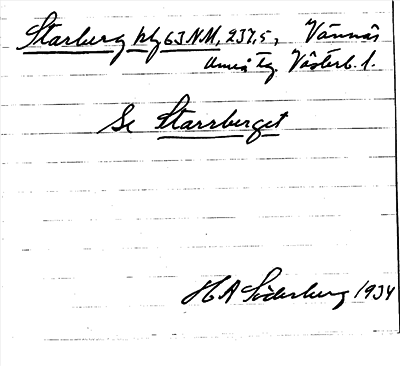 Starberg hfg 63 N.M, 237,5, Vännäs
Umeå tg. Västerb. l.
Se Starrberget
H A Söderberg 1934